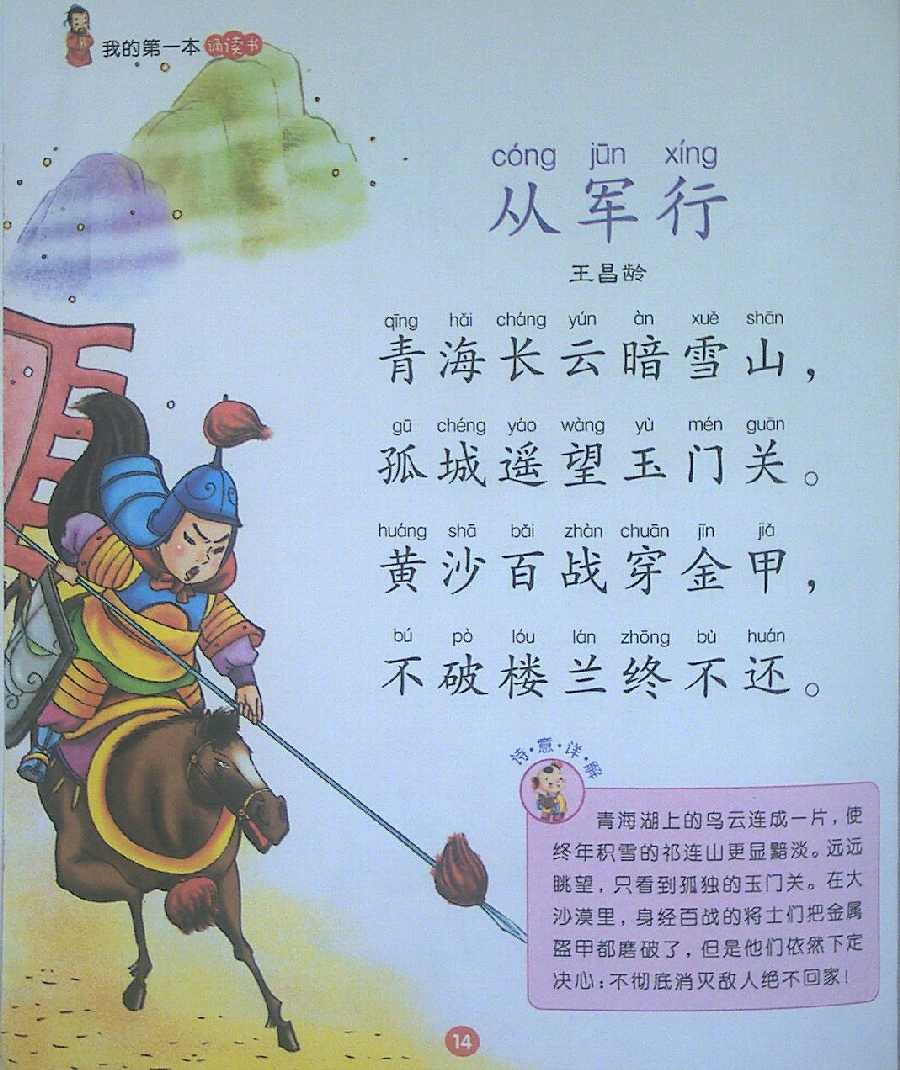 我的第一本诵读书
cóng jūn xíng
从军行
王昌龄
qīng hǎi cháng yún àn xuě shān
青海长云暗雪山，
gū chéng yáo wàng yù mén guān
孤城遥望玉门关。
huáng shā bǎi zhàn chuān jīn jiǎ
黄沙百战穿金甲，
bú pò lóu lán zhōng bù huán
不破楼兰终不还。
诗·意·详·解
青海湖上的鸟云连成一片，使
终年积雪的祁连山更显黯淡。远远
眺望，只看到孤独的玉门关。在大
沙漠里，身经百战的将士们把金属
盔甲都磨破了，但是他们依然下定
决心：不彻底消灭敌人绝不回家！
14